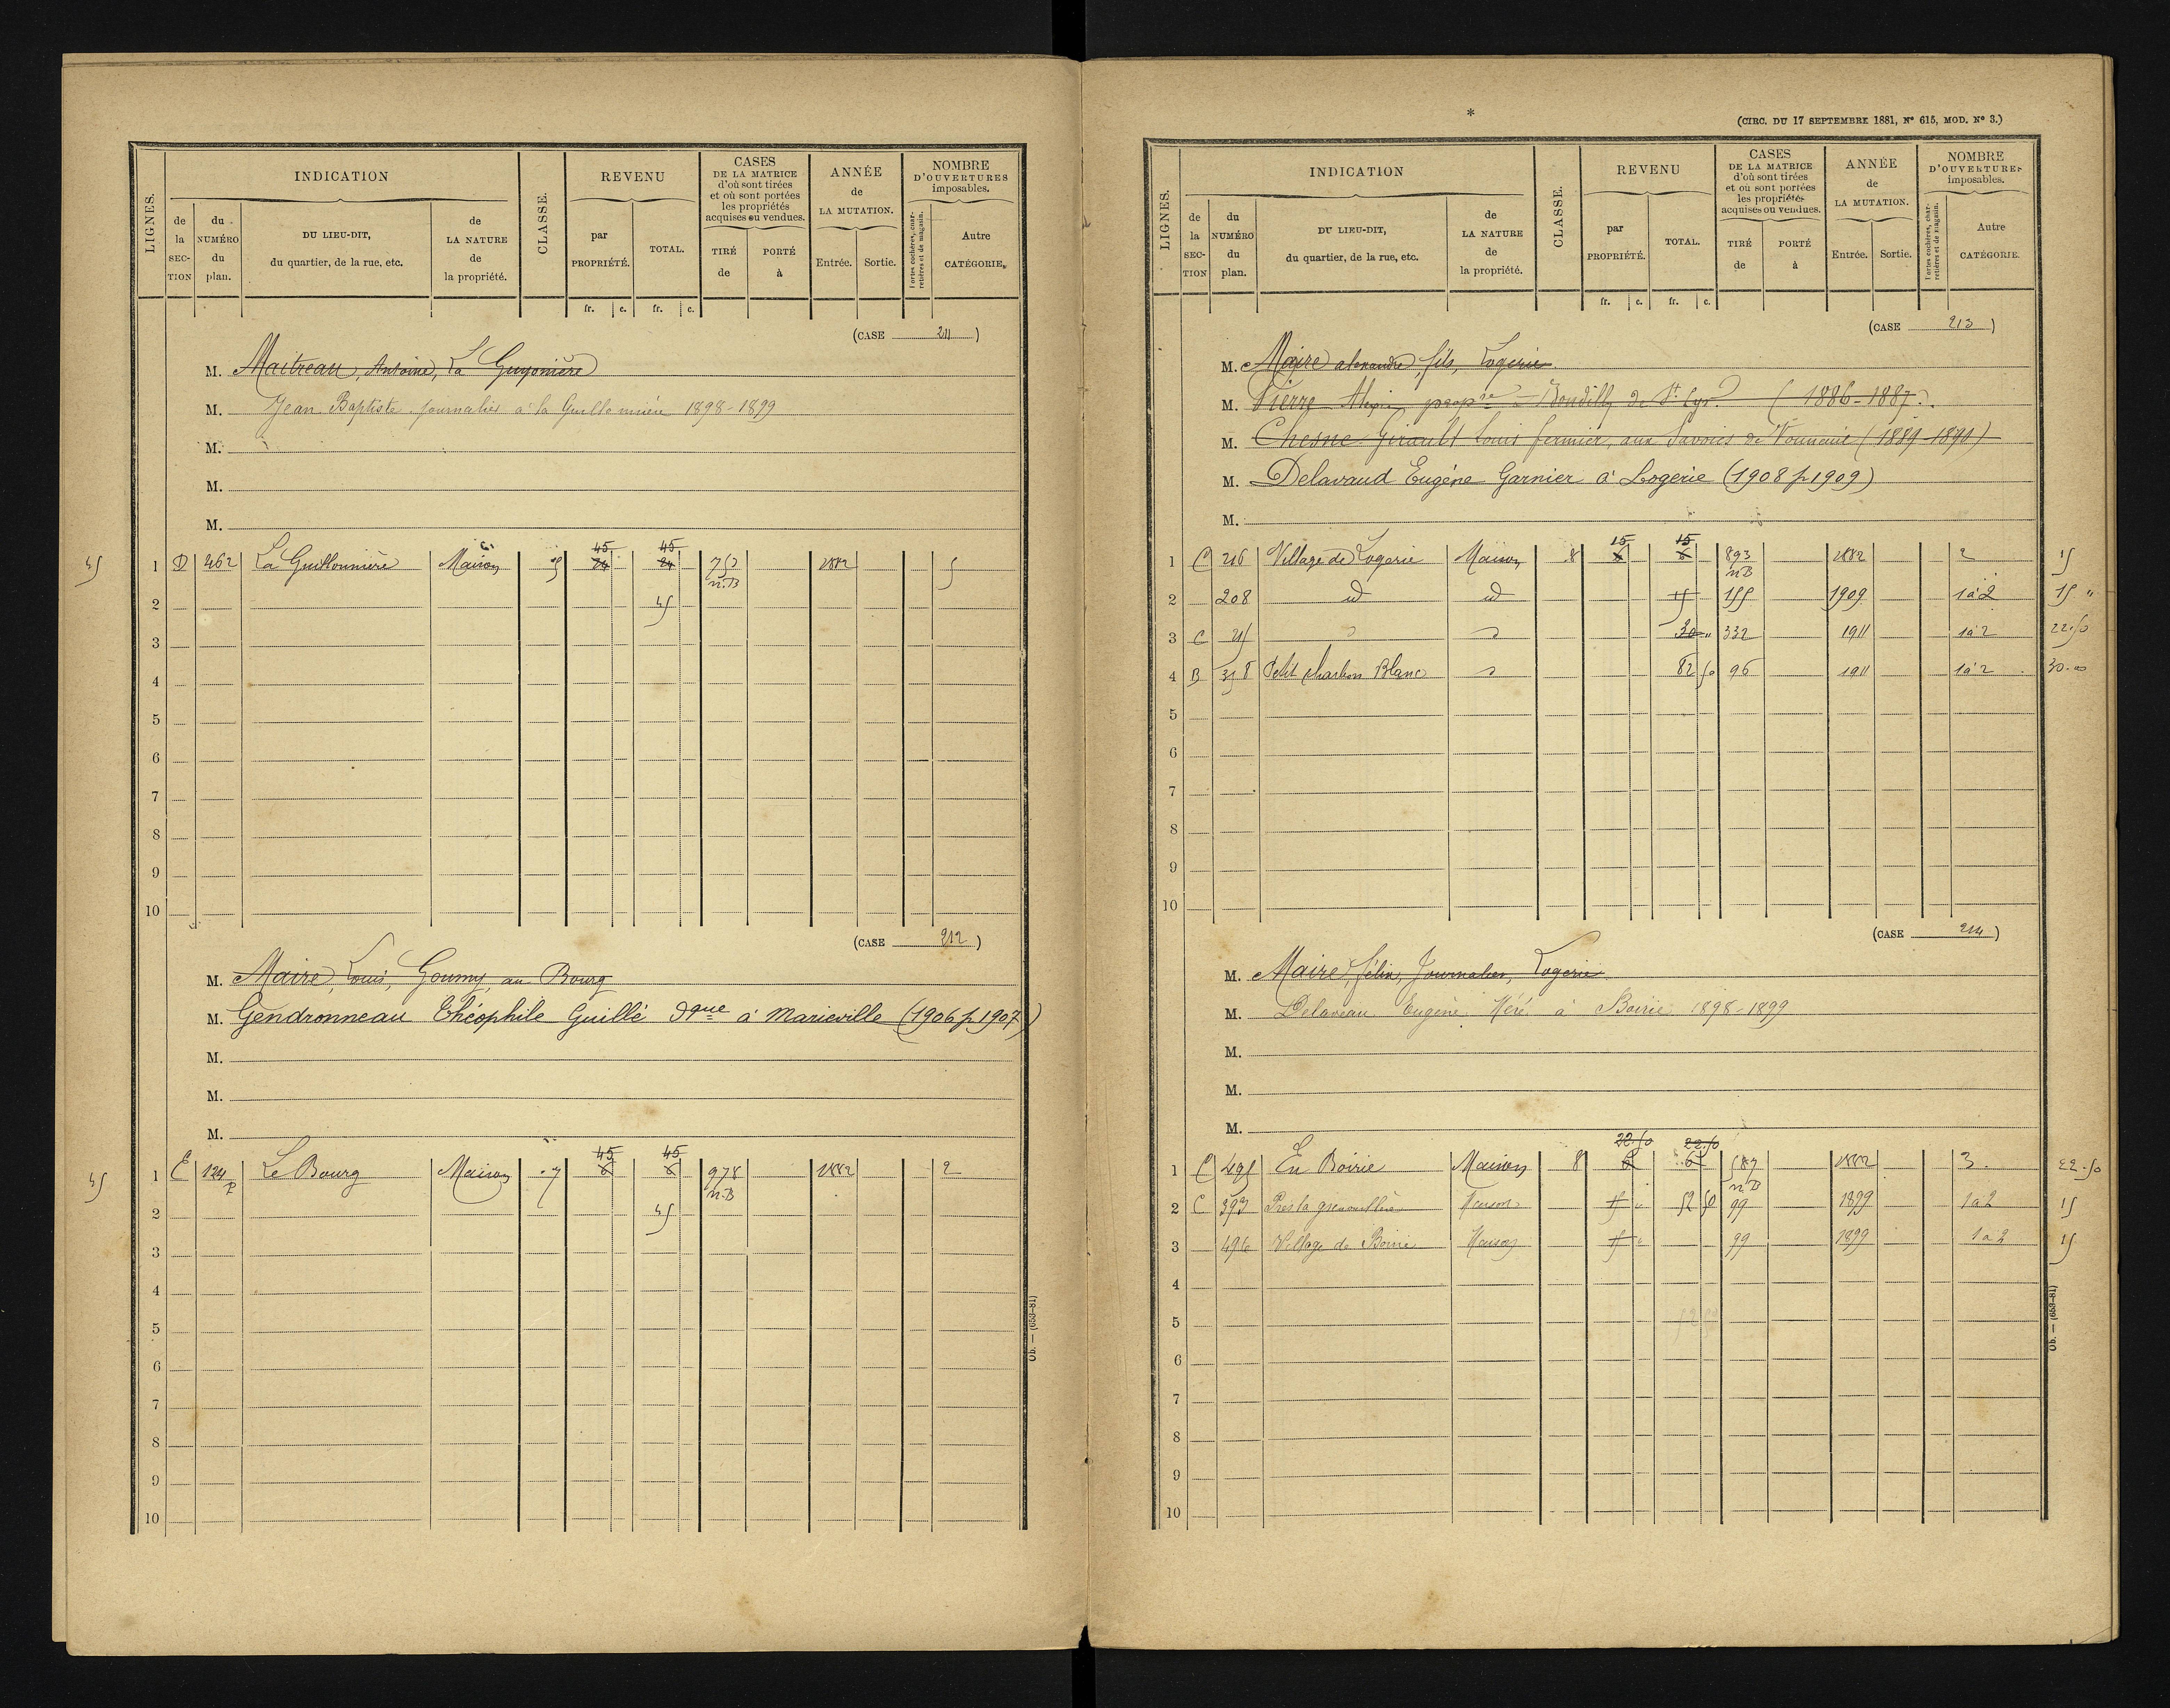 LIGNES.
INDICATION
de la SECTION
du NUMÉRO du plan.
DU LIEU-DIT, du quartier, de la rue, etc.
de LA NATURE de la propriété.
CLASSE.
REVENU
par PROPRIÉTÉ.
TOTAL.
fr. c. fr. c.
CASES DE LA MATRICE d'où sont tirées et où sont portées les propriétés acquises ou vendues.
TIRÉ de
PORTÉ à
ANNÉE de LA MUTATION.
Entrée. Sortie.
NOMBRE D'OUVERTURES imposables.
Portes cochères, charretières et de magasin.
Autre CATÉGORIE.
(CASE 211)
M. Maitreau, Antoine, La Guyonière
M. Jean Baptiste journalier à la Guillonnière 1898-1899
M.
M.
M.
45 45
45 1 D 462 La Guillonnière Maison 24 24 752 1882 5
n.B
2 45
3
4
5
6
7
8
9
10
(CASE 212)
M. Maire, Louis, Goumy, au Bourg
M. Gendronneau Théophile Guillé dque à Marieville (1906 p 1907)
M.
M.
M.
45 45
45 1 E 124 p Le Bourg Maison 7 6 6 978 1882 2
n.B
2 45
3
4
5
6
7
8
9
10
Ob. — (653-81)
*
(CIRC. DU 17 SEPTEMBRE 1881, N° 615, MOD. N° 3.)
LIGNES.
INDICATION
de la SECTION
du NUMÉRO du plan.
DU LIEU-DIT, du quartier, de la rue, etc.
de LA NATURE de la propriété.
CLASSE.
REVENU
par PROPRIÉTÉ.
TOTAL.
fr. c. fr. c.
CASES DE LA MATRICE d'où sont tirées et où sont portées les propriétés acquises ou vendues.
TIRÉ de
PORTÉ à
ANNÉE de LA MUTATION.
Entrée. Sortie.
NOMBRE D'OUVERTURES imposables.
Portes cochères, charretières et de magasin.
Autre CATÉGORIE.
(CASE 213)
M. Maire alexandre, fils, Logerie
M. Pierre Alexis propre de St Cyr (1886-1887).
M. Chesne Girault Louis fermier, aux Savoies de Vouneuil (1889-1890)
M. Delavaud Eugène Garnier à Logerie (1908 p 1909)
M.
15 15
1 C 216 Village de Logerie Maison 8 6 6 893 1882 2 15
n.B
2 208 id id 15 155 1909 1 à 2 15 "
3 C 215 30 " 332 1911 1 à 2 22.50
4 B 358 Petit charbon Blanc 82 50 96 1911 1 à 2 30.00
5
6
7
8
9
10
(CASE 214)
M. Maire, félix, Journalier, Logerie
M. Delaveau Eugène Méré à Boirie 1898-1899
M.
M.
M.
22.50 22.50
1 C 495 En Boirie Maison 8 6 6 587 1882 3. 22.50
n.B
2 C 393 Près la grenouillère Maison 15 " 52 50 99 1899 1 à 2 15
3 496 Village de Boirie Maison 15 " 99 1899 1 à 2 15
4
5
6
7
8
9
10
Ob. — (653-81)